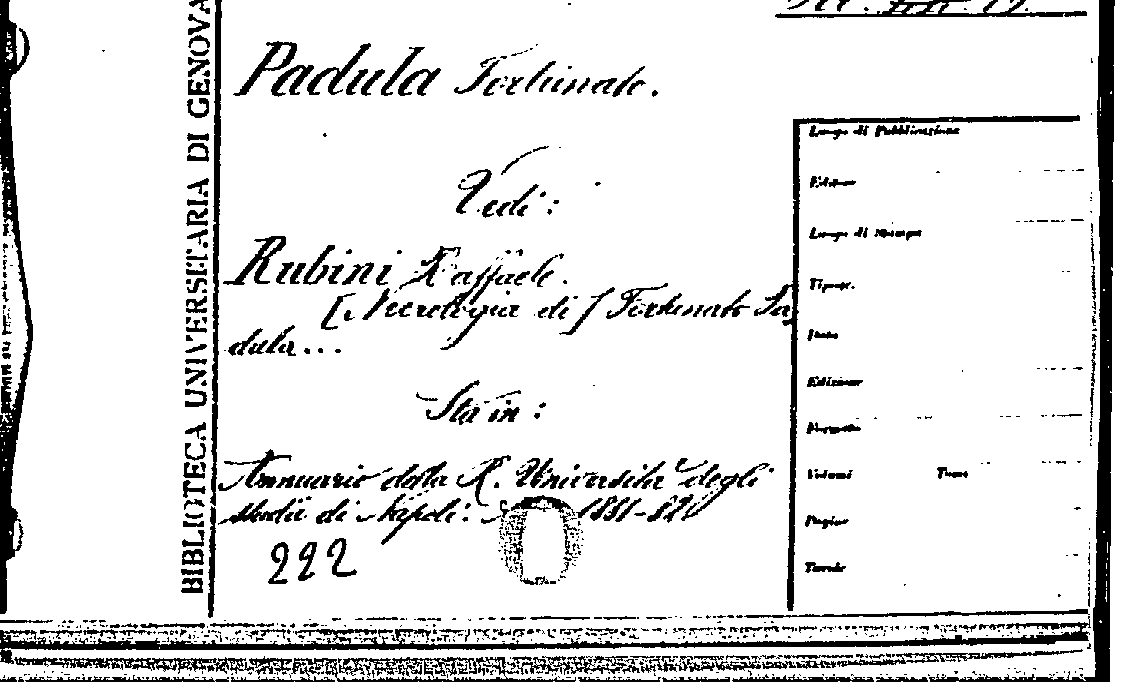 BIBLIOTECA UNIVERSITARIA DI GENOVA
Padula Fortunato.
Vedi:
Rubini Raffaele.
[Necrologia di] Fortunato Pa
dula...
Sta in:
Annuario della R. Università degli
studi di Napoli. 1881-82
222
Luogo di Pubblicazione
Editore
Luogo di Stampa
Tipogr.
Data
Edizione
Formato
Volumi Tomi
Pagine
Tavole